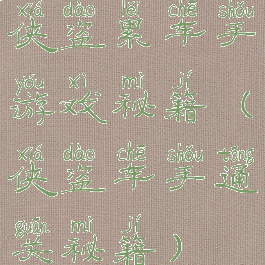 xiá dào lèi chē shǒu
侠盗累车手
yóu xì mì jí
游戏秘籍（
xiá dào chē shǒu tōng
侠盗车手通
guān mì jí
关秘籍）